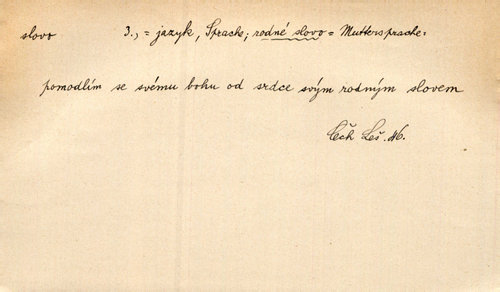 slovo 3., = jazyk, Sprache; rodné slovo = Muttersprache:
pomodlím se svému bohu od srdce svým rodným slovem
Čech Leš. 46.